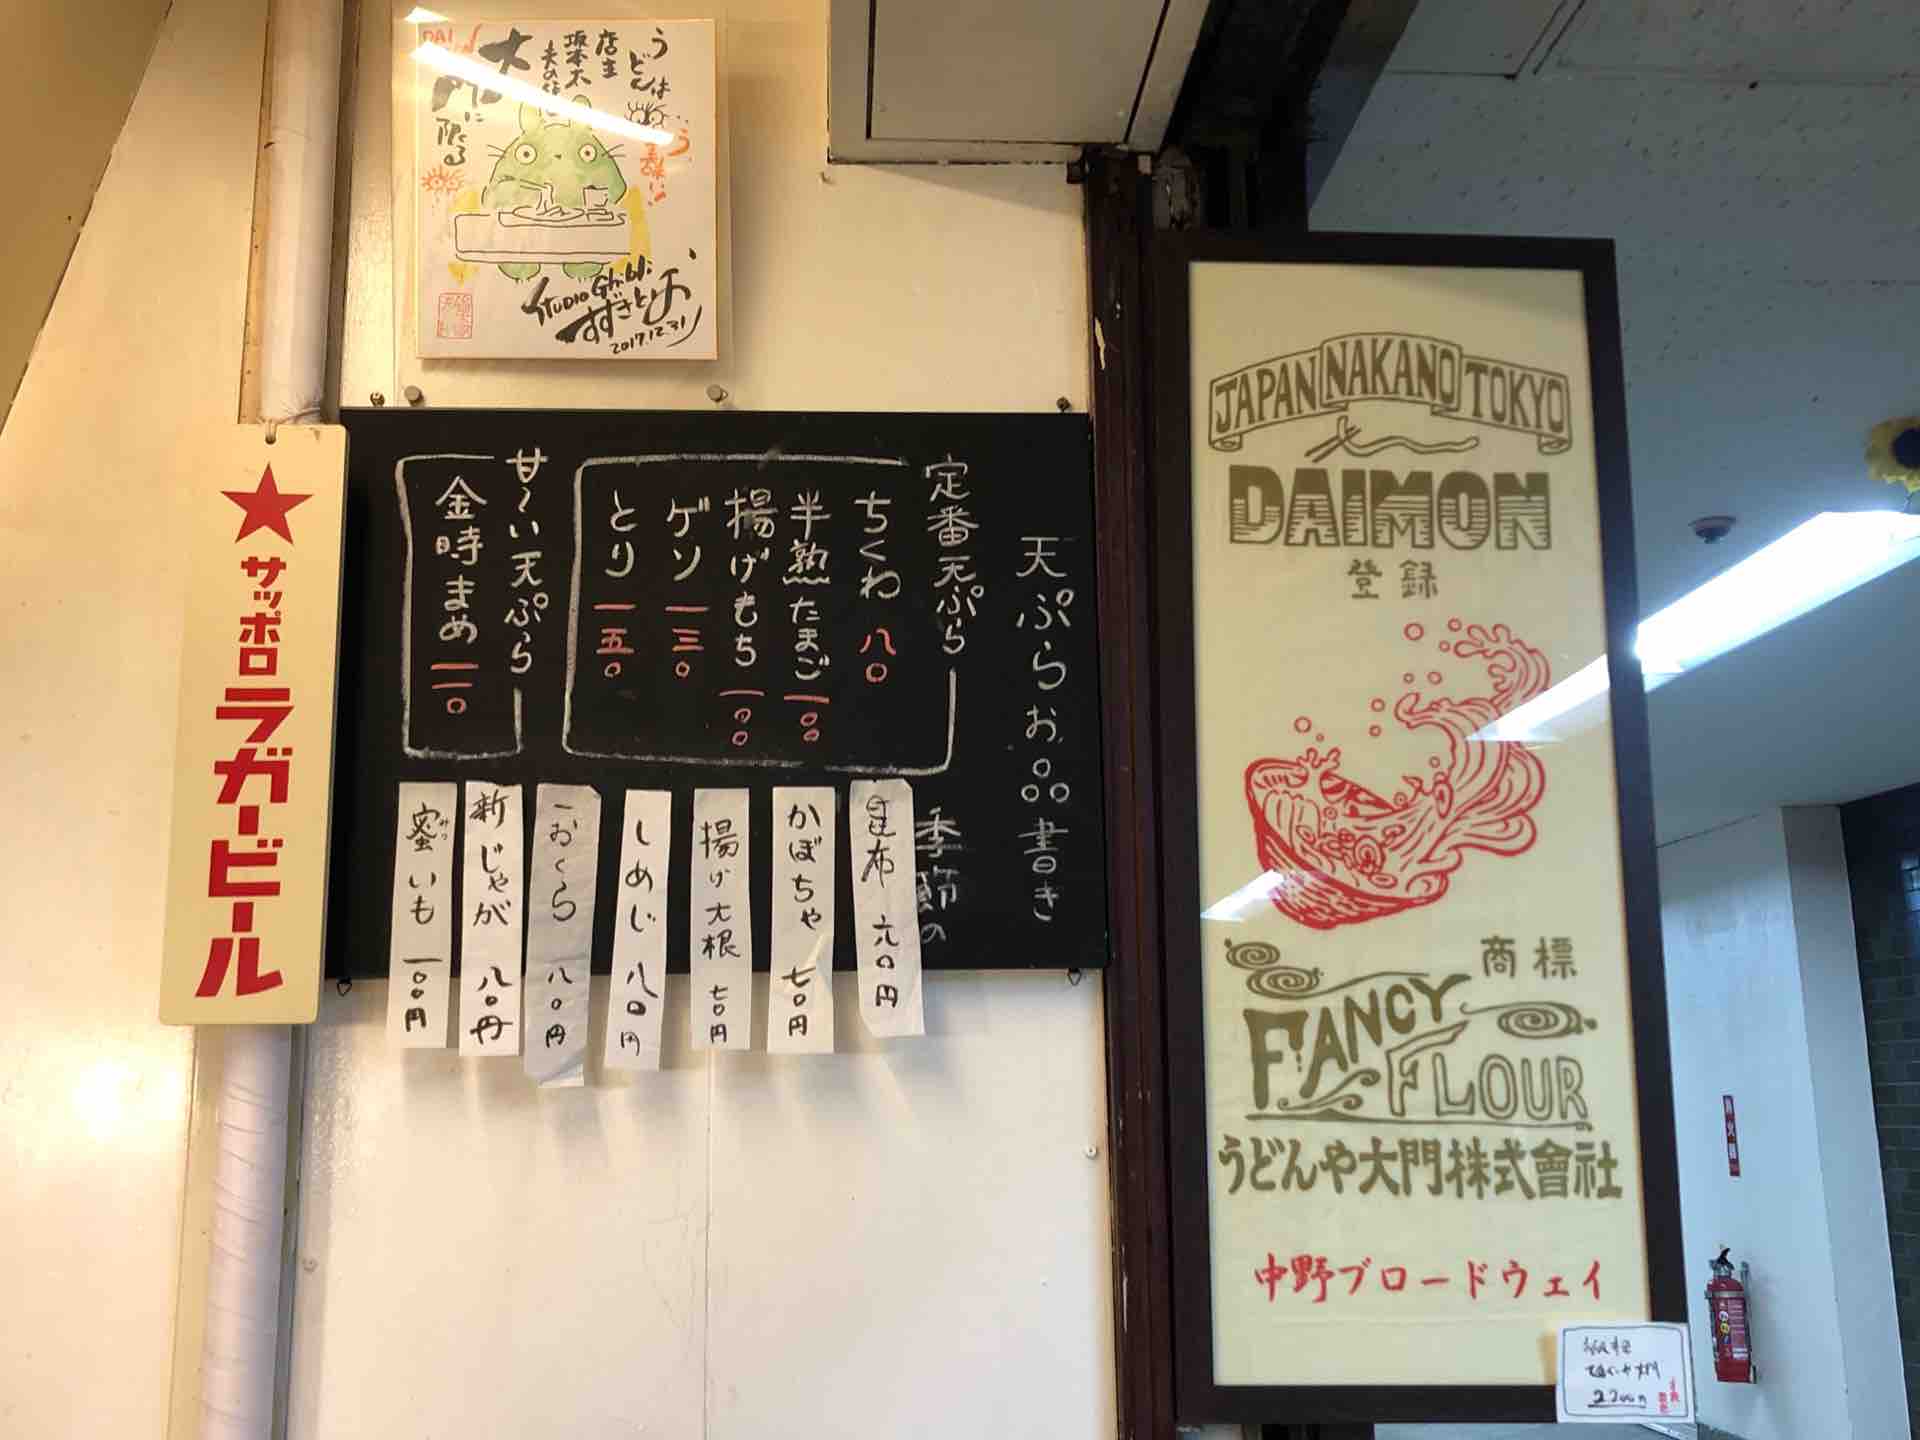 うどんは
店主
坂本大
大門に
限る
STUDIO Ghibli
すずきとしお
2017.12.31
サッポロラガービール
天ぷらお品書き
定番天ぷら
ちくわ 八〇
半熟たまご 一〇〇
揚げもち 一〇〇
ゲソ 一三〇
とり 一五〇
甘〜い天ぷら
金時まめ 一一〇
季節の
昆布 六〇円
かぼちゃ 七〇円
揚げ大根 七〇円
しめじ 八〇円
おくら 八〇円
新じゃが 八〇円
蜜いも 一〇〇円
みつ
JAPAN NAKANO TOKYO
DAIMON
登録
商標
FANCY
FLOUR
うどんや大門株式會社
中野ブロードウェイ
2200円
消火器